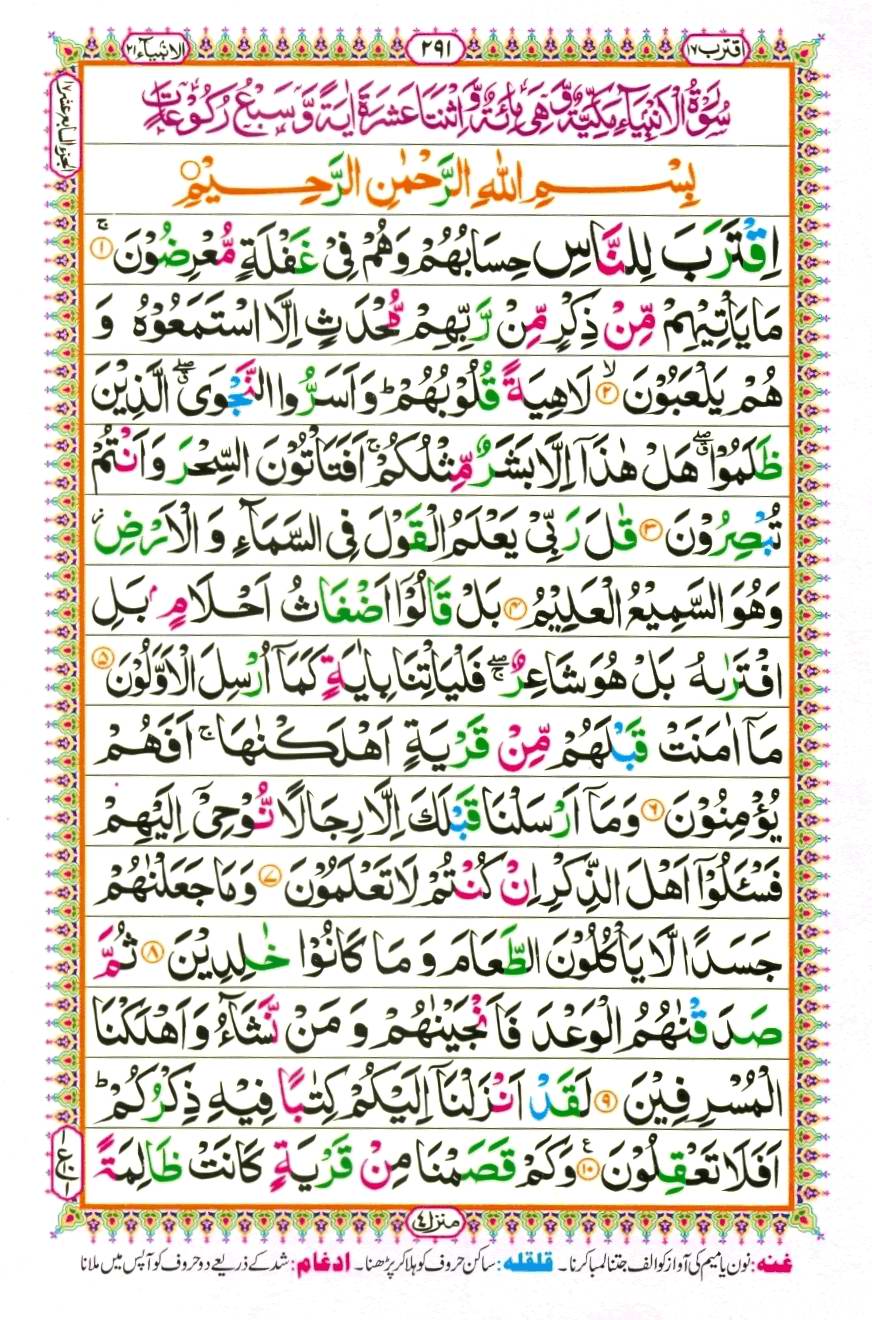 اقترب ١٧
٢٩١
الانبيآء ٢١
الجزء السابع عشر ١٧
سُوْرَةُ الْاَنْۢبِيَآءِ مَكِّيَّةٌ وَّهِيَ مِائَةٌ وَّ اِثْنَتَا عَشَرَةَ اٰيَةً وَّ سَبْعُ رُكُوْعَاتٍ
بِسْمِ اللّٰهِ الرَّحْمٰنِ الرَّحِيْمِ
اِقْتَرَبَ لِلنَّاسِ حِسَابُهُمْ وَهُمْ فِيْ غَفْلَةٍ مُّعْرِضُوْنَ ۚ﴿١﴾
مَا يَاْتِيْهِمْ مِّنْ ذِكْرٍ مِّنْ رَّبِّهِمْ مُّحْدَثٍ اِلَّا اسْتَمَعُوْهُ وَ
هُمْ يَلْعَبُوْنَ ۙ﴿٢﴾ لَاهِيَةً قُلُوْبُهُمْ ؕ وَاَسَرُّوا النَّجْوَى ۖۗ الَّذِيْنَ
ظَلَمُوْا ۖۗ هَلْ هٰذَاۤ اِلَّا بَشَرٌ مِّثْلُكُمْ ۚ اَفَتَاْتُوْنَ السِّحْرَ وَاَنْتُمْ
تُبْصِرُوْنَ ﴿٣﴾ قٰلَ رَبِّيْ يَعْلَمُ الْقَوْلَ فِي السَّمَآءِ وَ الْاَرْضِ ؗ
وَهُوَ السَّمِيْعُ الْعَلِيْمُ ﴿٤﴾ بَلْ قَالُوْۤا اَضْغَاثُ اَحْلَامٍۭ بَلِ
افْتَرٰىهُ بَلْ هُوَ شَاعِرٌ ۖۚ فَلْيَاْتِنَا بِاٰيَةٍ كَمَاۤ اُرْسِلَ الْاَوَّلُوْنَ ﴿٥﴾
مَاۤ اٰمَنَتْ قَبْلَهُمْ مِّنْ قَرْيَةٍ اَهْلَكْنٰهَا ۚ اَفَهُمْ
يُؤْمِنُوْنَ ﴿٦﴾ وَمَاۤ اَرْسَلْنَا قَبْلَكَ اِلَّا رِجَالًا نُّوْحِيْۤ اِلَيْهِمْ
فَسْـَٔلُوْۤا اَهْلَ الذِّكْرِ اِنْ كُنْتُمْ لَا تَعْلَمُوْنَ ﴿٧﴾ وَمَا جَعَلْنٰهُمْ
جَسَدًا لَّا يَاْكُلُوْنَ الطَّعَامَ وَ مَا كَانُوْا خٰلِدِيْنَ ﴿٨﴾ ثُمَّ
صَدَقْنٰهُمُ الْوَعْدَ فَاَنْجَيْنٰهُمْ وَ مَنْ نَّشَآءُ وَاَهْلَكْنَا
الْمُسْرِفِيْنَ ﴿٩﴾ لَقَدْ اَنْزَلْنَاۤ اِلَيْكُمْ كِتٰبًا فِيْهِ ذِكْرُكُمْ ؕ
اَفَلَا تَعْقِلُوْنَ ﴿١٠﴾ ۧ وَكَمْ قَصَمْنَا مِنْ قَرْيَةٍ كَانَتْ ظَالِمَةً
منزل ٤
غنه: نون یا میم کی آواز کو الف جتنا لمبا کرنا۔ قلقله: ساکن حروف کو ہلا کر پڑھنا۔ ادغام: شد کے ذریعے دو حروف کو آپس میں ملانا